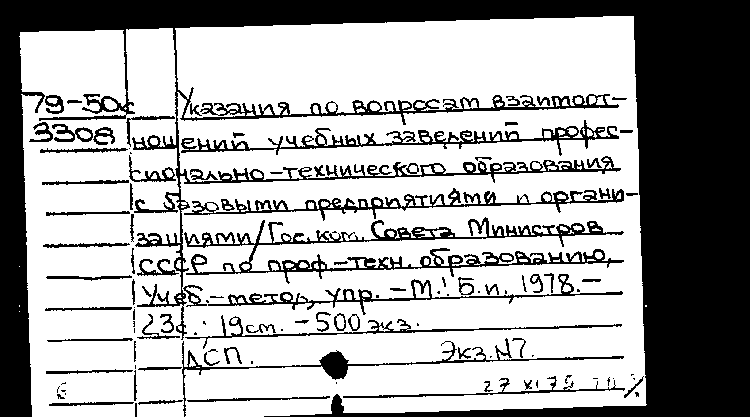 79-50к Указания по вопросам взаимоот-
3308 ношений учебных заведений профес-
сионально-технического образования
с базовыми предприятиями и органи-
зациями/Гос. ком. Совета Министров
СССР по проф.-техн. образованию,
Учеб.-метод, упр. - М.: Б.и., 1978. -
23с.; 19см. - 500 экз.
ДСП. Экз. №7.
6 27 XI 79